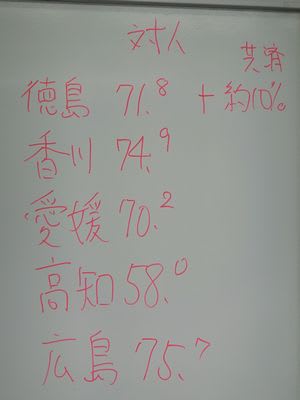 対人
共済
徳島 71.8 + 約10%
香川 74.9
愛媛 70.2
高知 58.0
広島 75.7